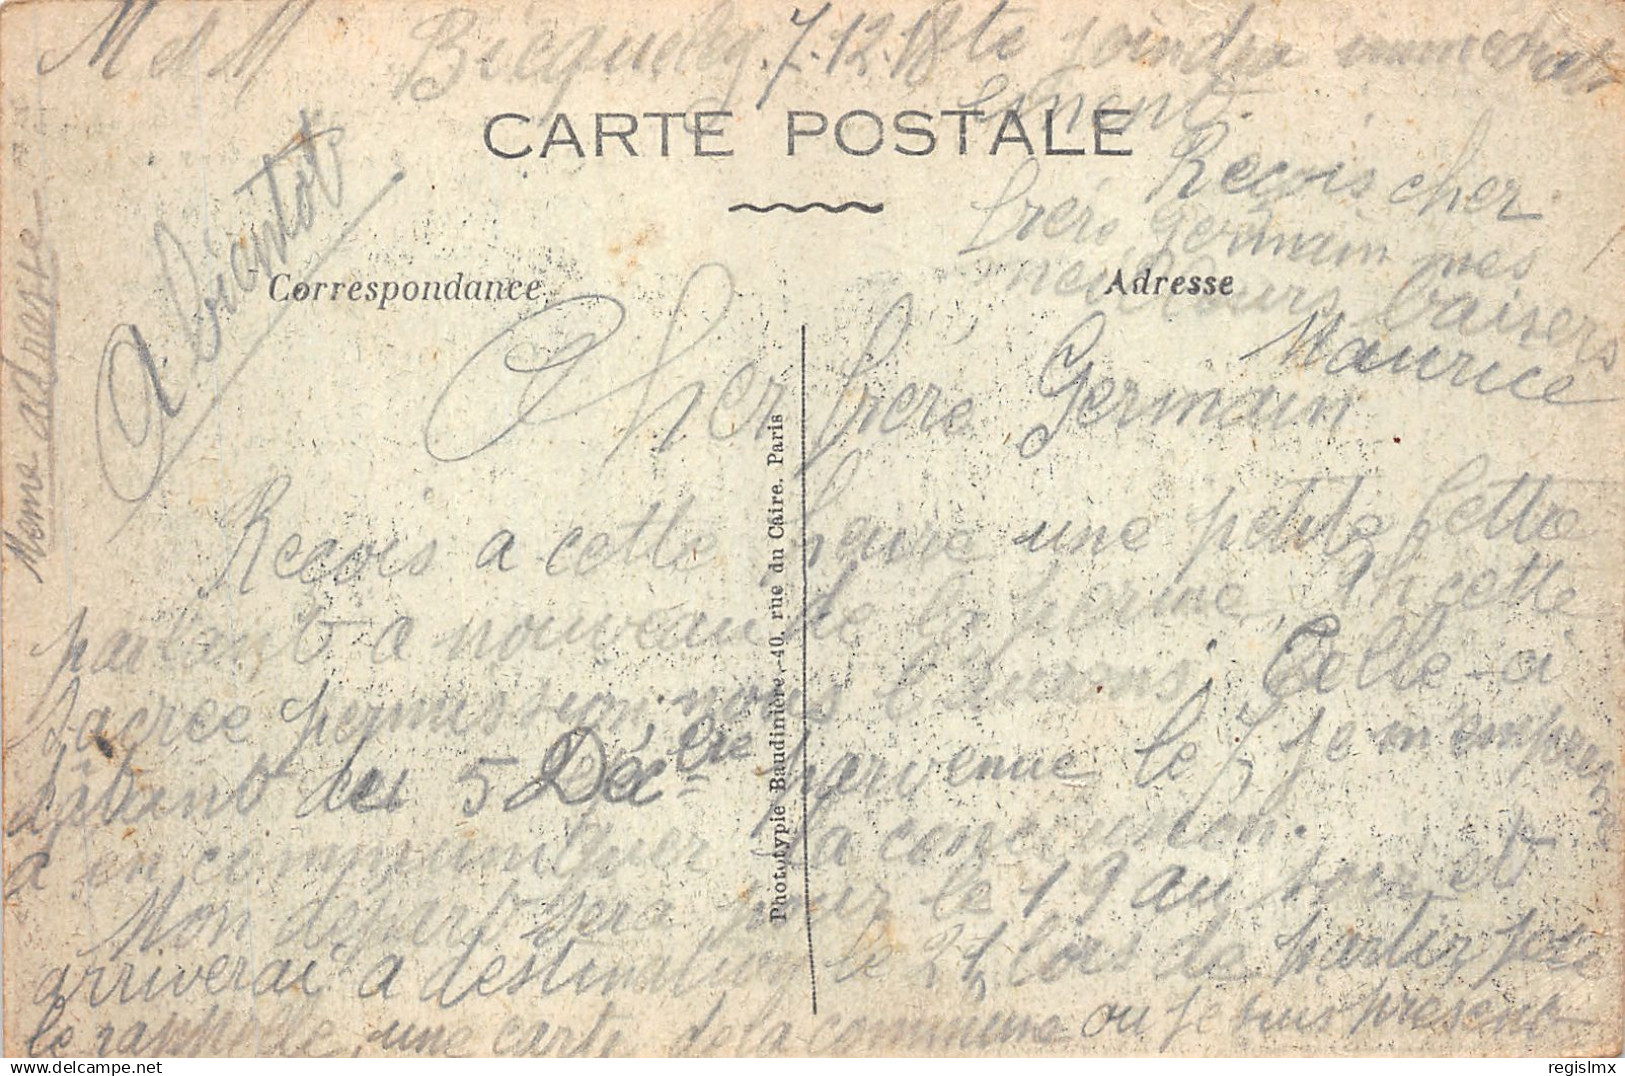 M et M Bicqueley. 7.12.18 te joindra immédiat
ement.
CARTE POSTALE
Reçois cher
frère Germain mes
meilleurs baisers
Maurice
A bientôt
Meme adresse
Correspondance
Adresse
Cher frère Germain
Reçois a cette heure une petite lettre
partant a nouveau de la ferme, Ah cette
sacrée permission, nous l'aurons. Celle-ci
datant du 5 Déc.bre parvenue le 7 je m'empresse
a en communiquer la concusion.
Mon depart sera pour le 19 au soir et
arriverai a destination le 21, lors de partir je te
le rappelle, une carte de la commune ou je suis present
Phototypie Baudinière, 40, rue du Caire. Paris
regislmx